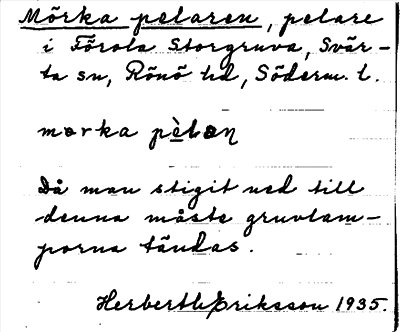 Mörka pelaren, pelare
i Förola Storgruva, Svär-
ta sn, Rönö hd, Söderm. l.
Då man stigit ned till
denna måste gruvlam-
porna tändas.
Eriksson 1935.